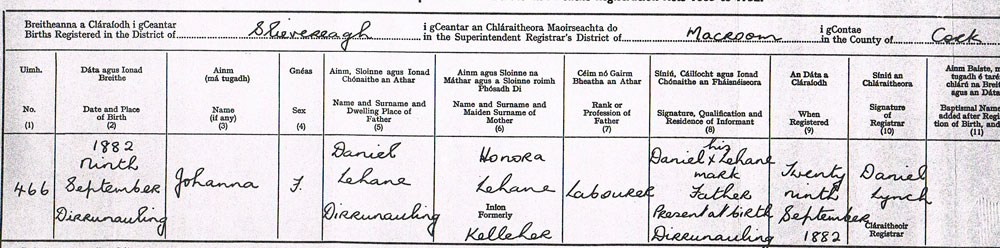 Breitheanna a Cláraíodh i gCeantar i gCeantar an Chláraitheora Maoirseachta do i gContae
Births Registered in the District of Slievereagh in the Superintendent Registrar's District of Macroom in the County of Cork
Uimh.
No.
(1)
Dáta agus Ionad
Breithe
Date and Place
of Birth
(2)
Ainm
(má tugadh)
Name
(if any)
(3)
Gnéas
Sex
(4)
Ainm, Sloinne agus Ionad
Chónaithe an Athar
Name and Surname and
Dwelling Place of
Father
(5)
Ainm agus Sloinne na
Máthar agus a Sloinne roimh
Phósadh Di
Name and Surname and
Maiden Surname of
Mother
(6)
Céim nó Gairm
Bheatha an Athar
Rank or
Profession of
Father
(7)
Síniú, Cáilíocht agus Ionad
Chónaithe an Fhaisnéiseora
Signature, Qualification and
Residence of Informant
(8)
An Dáta a
Cláraíodh
When
Registered
(9)
Síniú an
Chláraitheora
Signature
of
Registrar
(10)
Ainm Baiste,
tugadh é
chláru na
agus an Dáta
Baptismal Name
added after
tion of Birth, and
(11)
466
1882
Ninth
September
Dirrunauling
Johanna
F.
Daniel
Lehane
Dirrunauling
Honora
Lehane
Inion
Formerly
Kelleher
Labourer
his
Daniel x Lehane
mark
Father
Present at birth
Dirrunauling
Twenty
ninth
September
1882
Daniel
Lynch
Cláraitheoir
Registrar